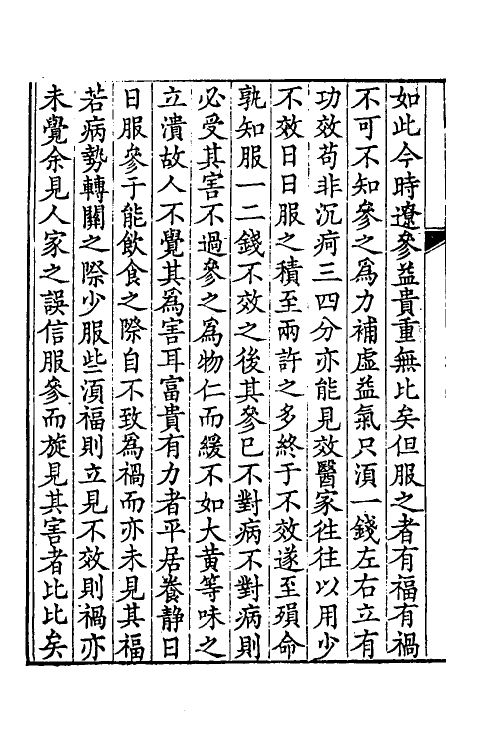 如此今時遼參益貴重無比矣但服之者有福有禍
不可不知參之爲力補虛益氣只湏一錢左右立有
功效苟非沉疴三四分亦能見效醫家徃徃以用少
不效日日服之積至兩許之多終于不效遂至殞命
孰知服一二錢不效之後其參已不對病不對病則
必受其害不過參之爲物仁而緩不如大黃等味之
立潰故人不覺其爲害耳富貴有力者平居養静日
日服參于能飲食之際自不致爲禍而亦未見其福
若病勢轉關之際少服些湏福則立見不效則禍亦
未覺余見人家之誤信服參而旋見其害者比比矣